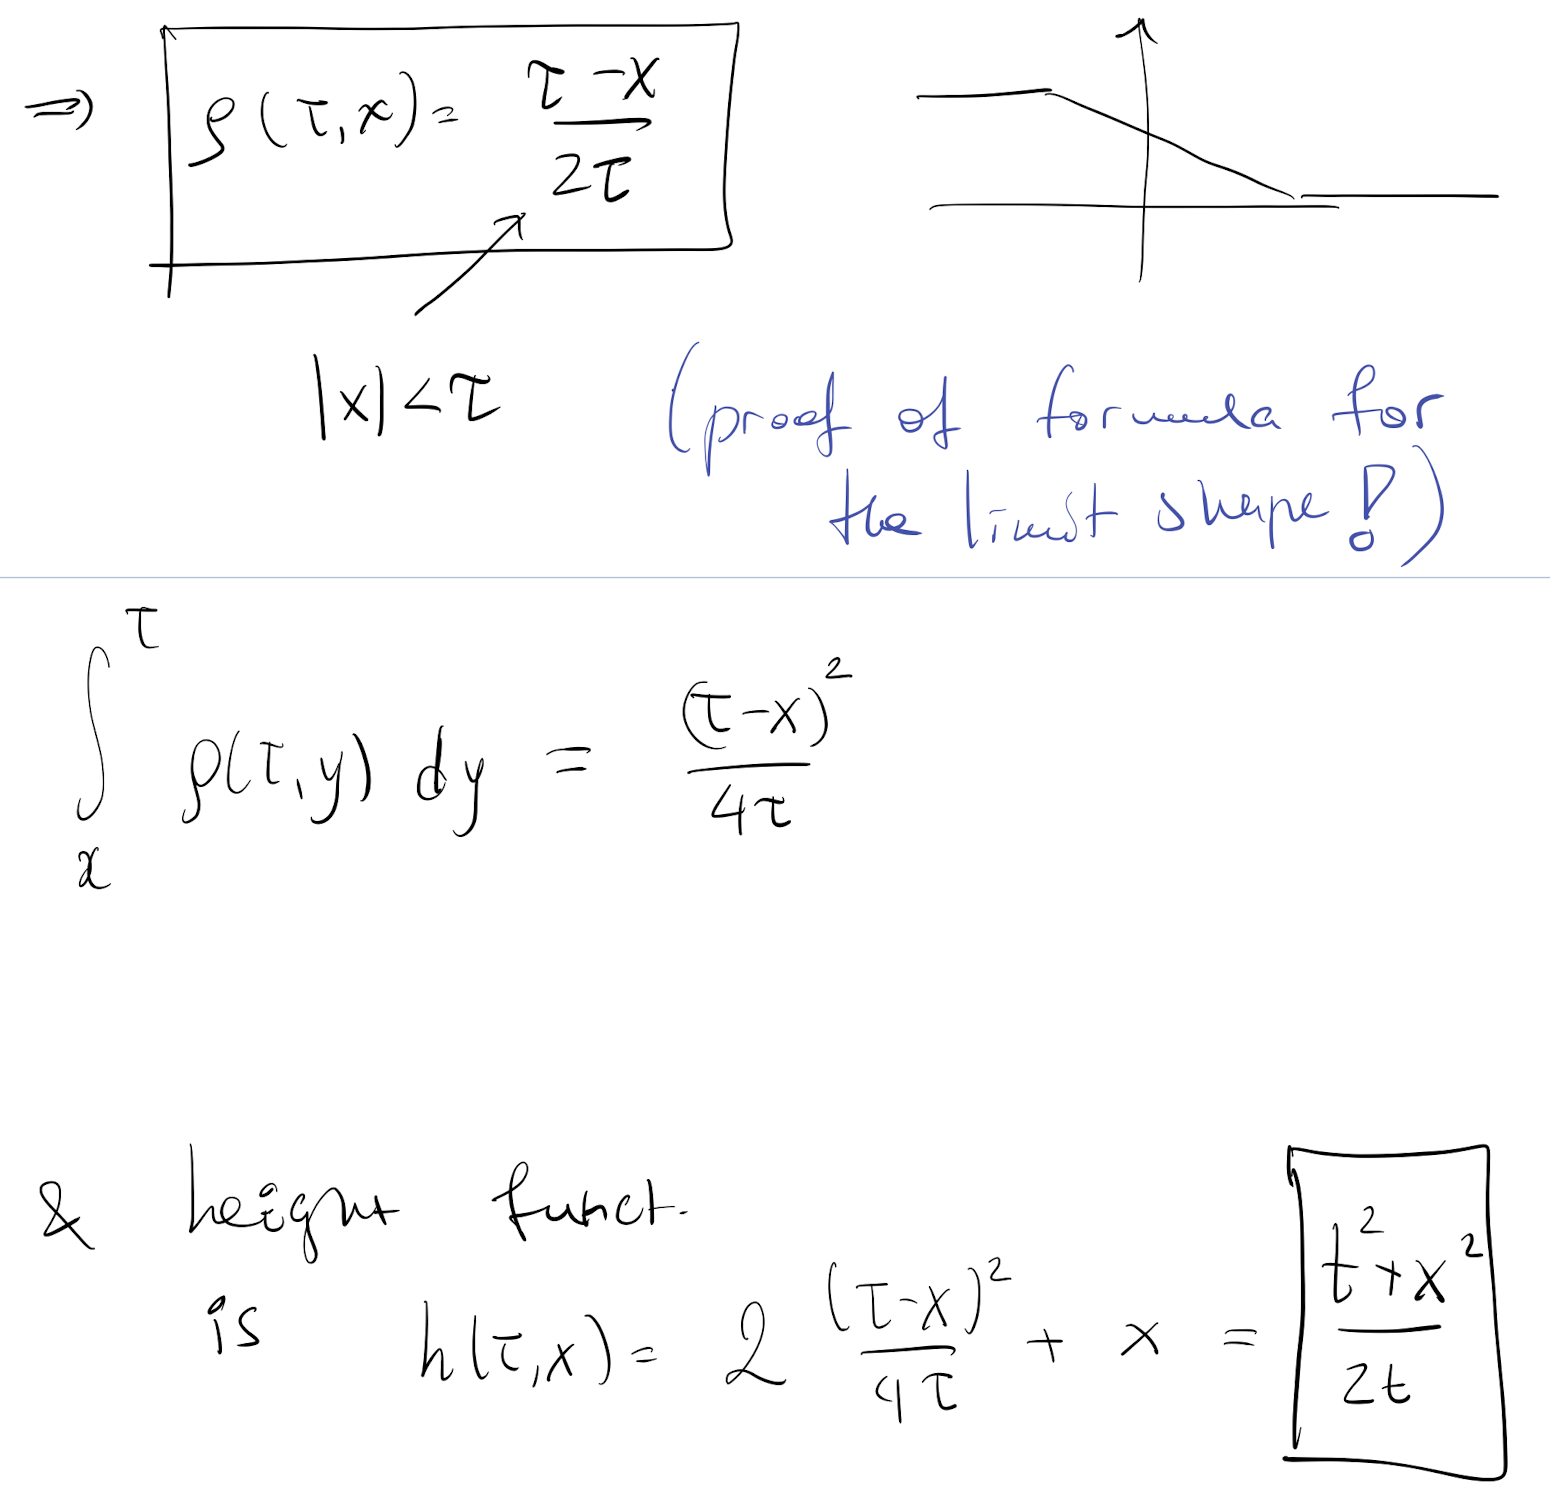 ⇒ ρ(τ,x) = (τ-x)/(2τ)
|x|<τ
(proof of formula for
the limit shape!)
∫_x^τ ρ(τ,y) dy = (τ-x)²/(4τ)
& height funct.
is h(τ,x) = 2 (τ-x)²/(4τ) + x = (t²+x²)/(2t)